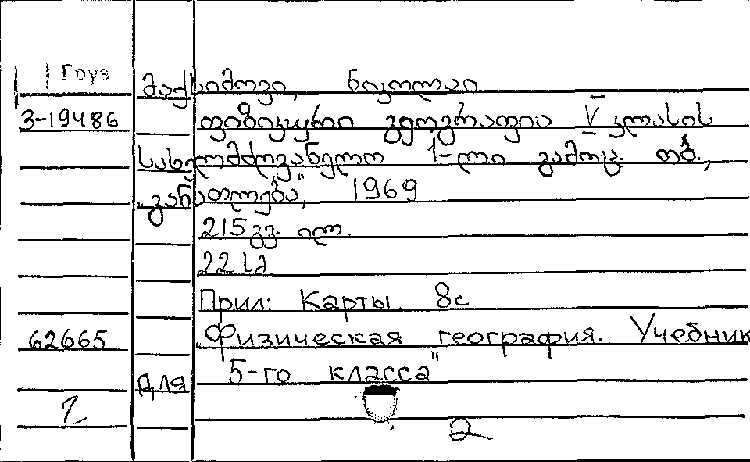 Груз
მაქსიმოვი, ნიკოლაი
3-19486 ფიზიკური გეოგრაფია V კლასის
სახელმძღვანელო 1-ლი გამოც. თბ.,
"განათლება", 1969
215 გვ. ილ.
22 სმ
Прил: Карты 8с
62665 Физическая география. Учебник
для 5-го класса"
2
2